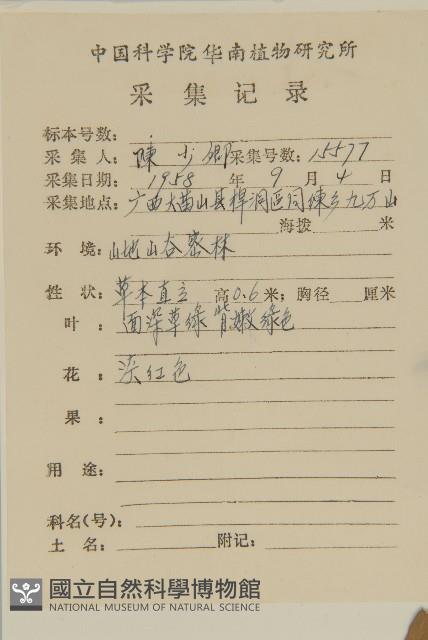 中国科学院华南植物研究所
采集记录
标本号数:
采集人: 陳少卿 采集号数: 15577
采集日期: 1958 年 9 月 4 日
采集地点: 广西大苗山县桿洞區同練乡九万山
海拨 米
环境: 山地山谷密林
性状: 草本直立 高0.6米; 胸径 厘米
叶: 面深草綠 背嫩綠色
花: 淡红色
果:
用途:
科名(号):
土名: 附记:
國立自然科學博物館
NATIONAL MUSEUM OF NATURAL SCIENCE